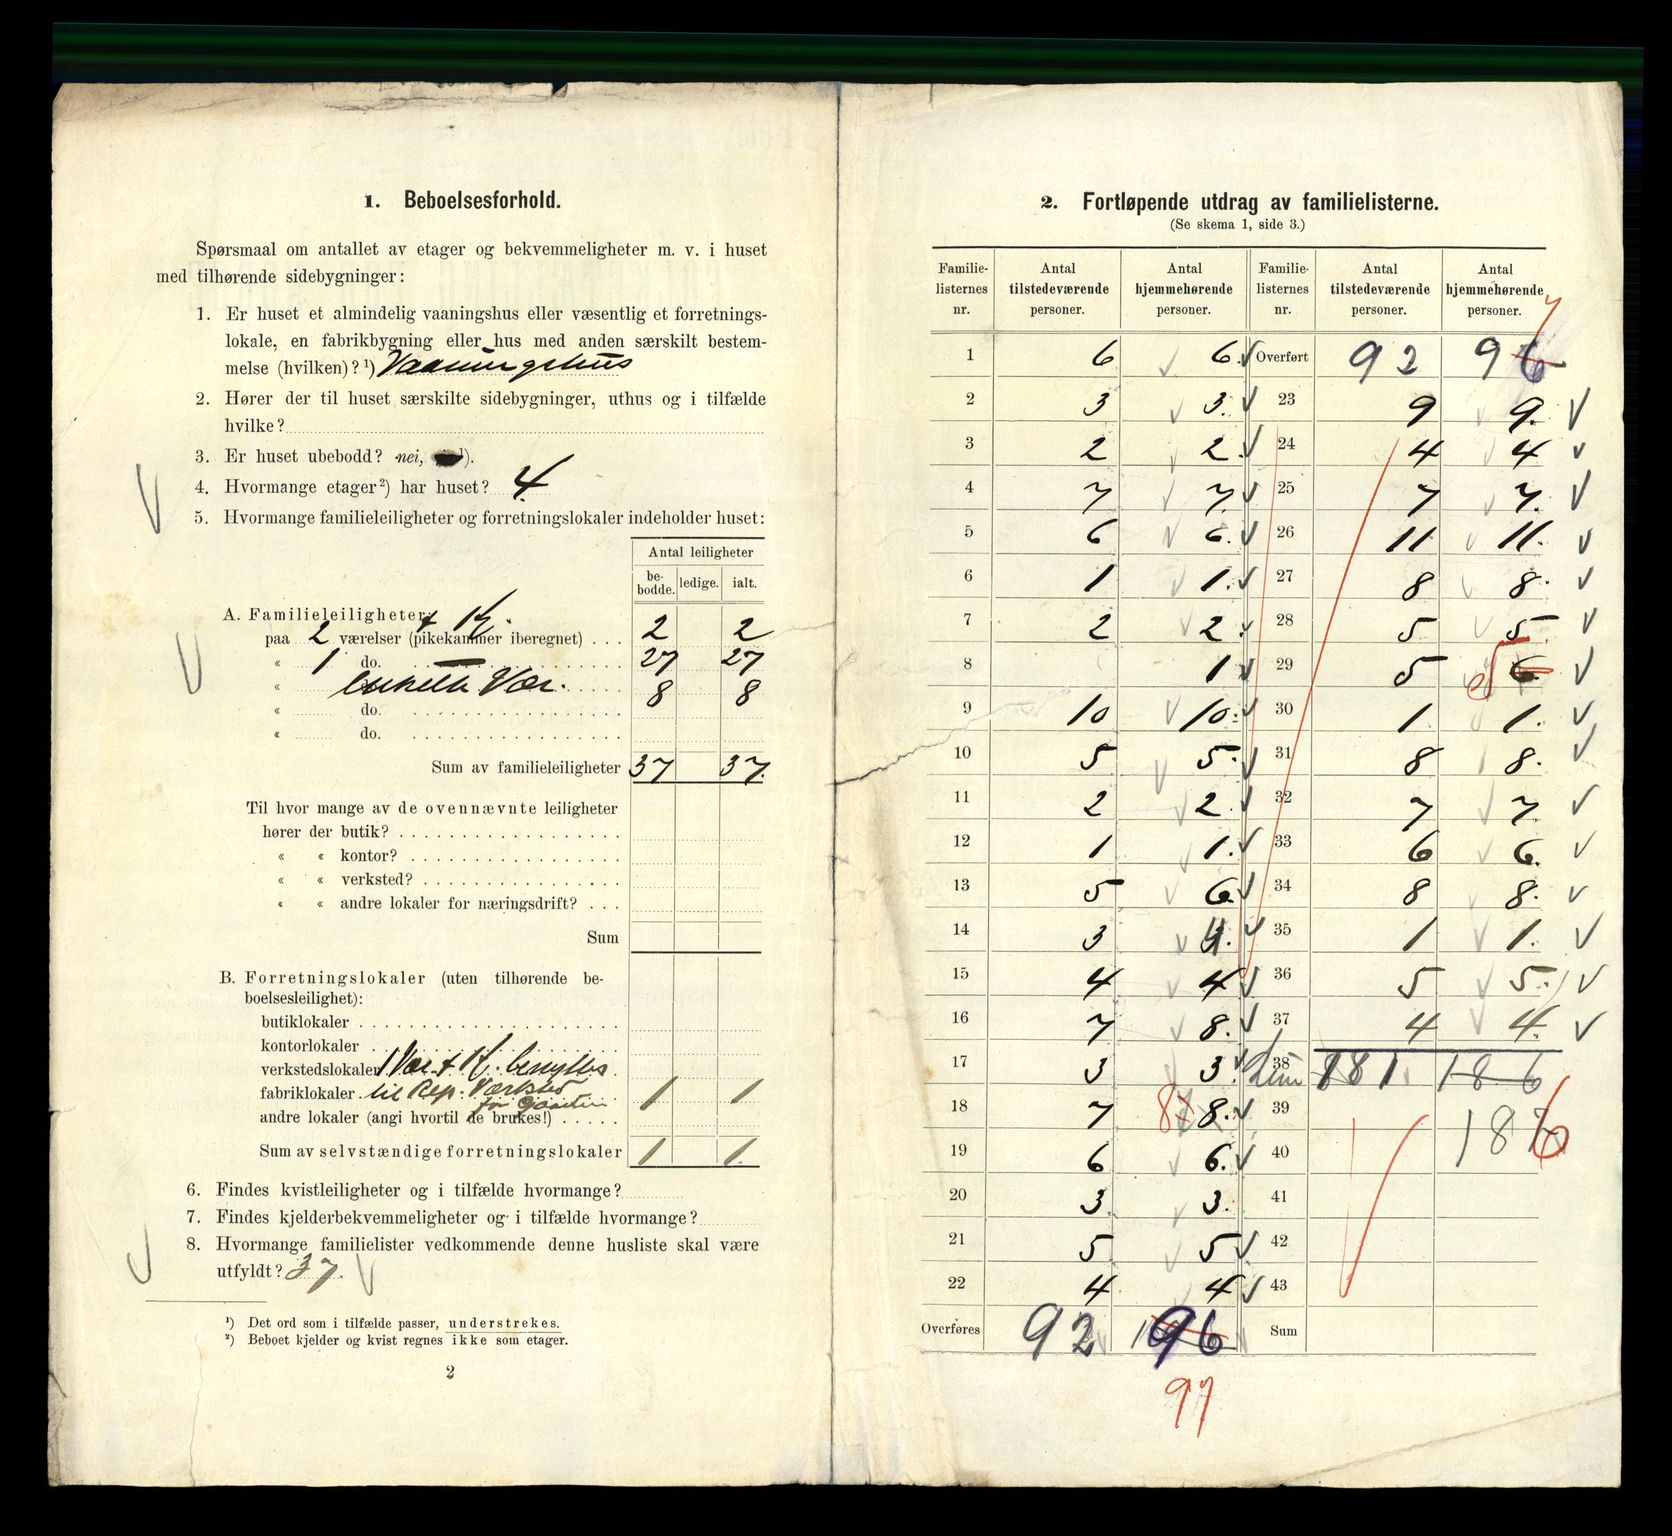 1. Beboelsesforhold.
Spørsmaal om antallet av etager og bekvemmeligheter m. v. i huset
med tilhørende sidebygninger:
1. Er huset et almindelig vaaningshus eller væsentlig et forretnings-
lokale, en fabrikbygning eller hus med anden særskilt bestem-
melse (hvilken)?¹) Vaaningshus
2. Hører der til huset særskilte sidebygninger, uthus og i tilfælde
hvilke?
3. Er huset ubebodd? nei, ¹).
4. Hvormange etager²) har huset? 4
5. Hvormange familieleiligheter og forretningslokaler indeholder huset:
Antal leiligheter
be-bodde. ledige. ialt.
A. Familieleiligheter: + K.
paa 2 værelser (pikekammer iberegnet) . . . 2 2
« 1 do. 27 27
« enkelte Vær. 8 8
« do.
« do.
Sum av familieleiligheter 37 37.
Til hvor mange av de ovennævnte leiligheter
hører der butik?
« « kontor?
« « verksted?
« « andre lokaler for næringsdrift? . . .
Sum
B. Forretningslokaler (uten tilhørende be-
boelsesleilighet):
butiklokaler
kontorlokaler
verkstedslokaler 1 Vær. + K. benyttes
fabriklokaler til Rep. Værksted 1 1
for
andre lokaler (angi hvortil de brukes!)
Sum av selvstændige forretningslokaler 1 1.
6. Findes kvistleiligheter og i tilfælde hvormange?
7. Findes kjelderbekvemmeligheter og i tilfælde hvormange?
8. Hvormange familielister vedkommende denne husliste skal være
utfyldt? 37.
¹) Det ord som i tilfælde passer, understrekes.
²) Beboet kjelder og kvist regnes ikke som etager.
2
2. Fortløpende utdrag av familielisterne.
(Se skema 1, side 3.)
Familie-listernes nr. Antal tilstedeværende personer. Antal hjemmehørende personer. Familie-listernes nr. Antal tilstedeværende personer. Antal hjemmehørende personer.
1 6 6. Overført 92 96 7
2 3 3. 23 9 9.
3 2 2. 24 4 4
4 7 7. 25 7 7.
5 6 6. 26 11 11.
6 1 1. 27 8 8.
7 2 2. 28 5 5
8 1 29 5 6 5
9 10 10. 30 1 1.
10 5 5. 31 8 8.
11 2 2. 32 7 7
12 1 1. 33 6 6.
13 5 6. 34 8 8.
14 3 4. 35 1 1.
15 4 4 36 5 5.
16 7 8. 37 4 4.
17 3 3. 38 181 186
18 7 8 8. 39
19 6 6. 40 187 6
20 3 3. 41
21 5 5 42
22 4 4 43
Overføres 92 96 Sum
97